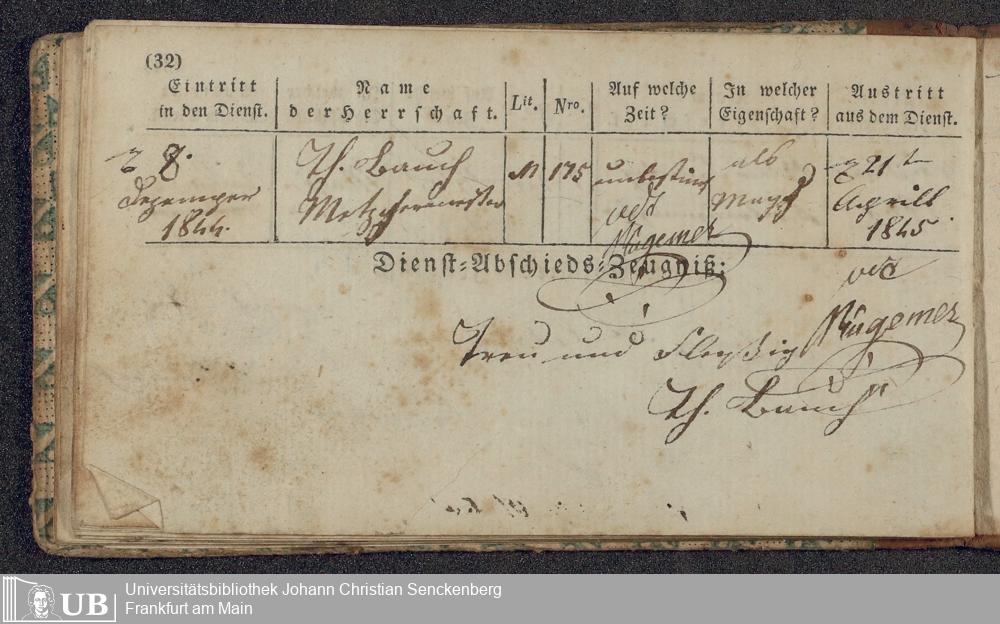 (32)
Eintritt in den Dienst.
Name der Herrschaft.
Lit.
Nro.
Auf welche Zeit?
In welcher Eigenschaft?
Austritt aus dem Dienst.
8.
Dezemper
1844.
Th. Bauch
Metzgermeister
M
175
unbestimt
als
Magd
21t
Aprill
1845
Dienst-Abschieds-Zeugniß:
Treu und Fleyßig
Th. Bauch
Universitätsbibliothek Johann Christian Senckenberg
Frankfurt am Main
UB